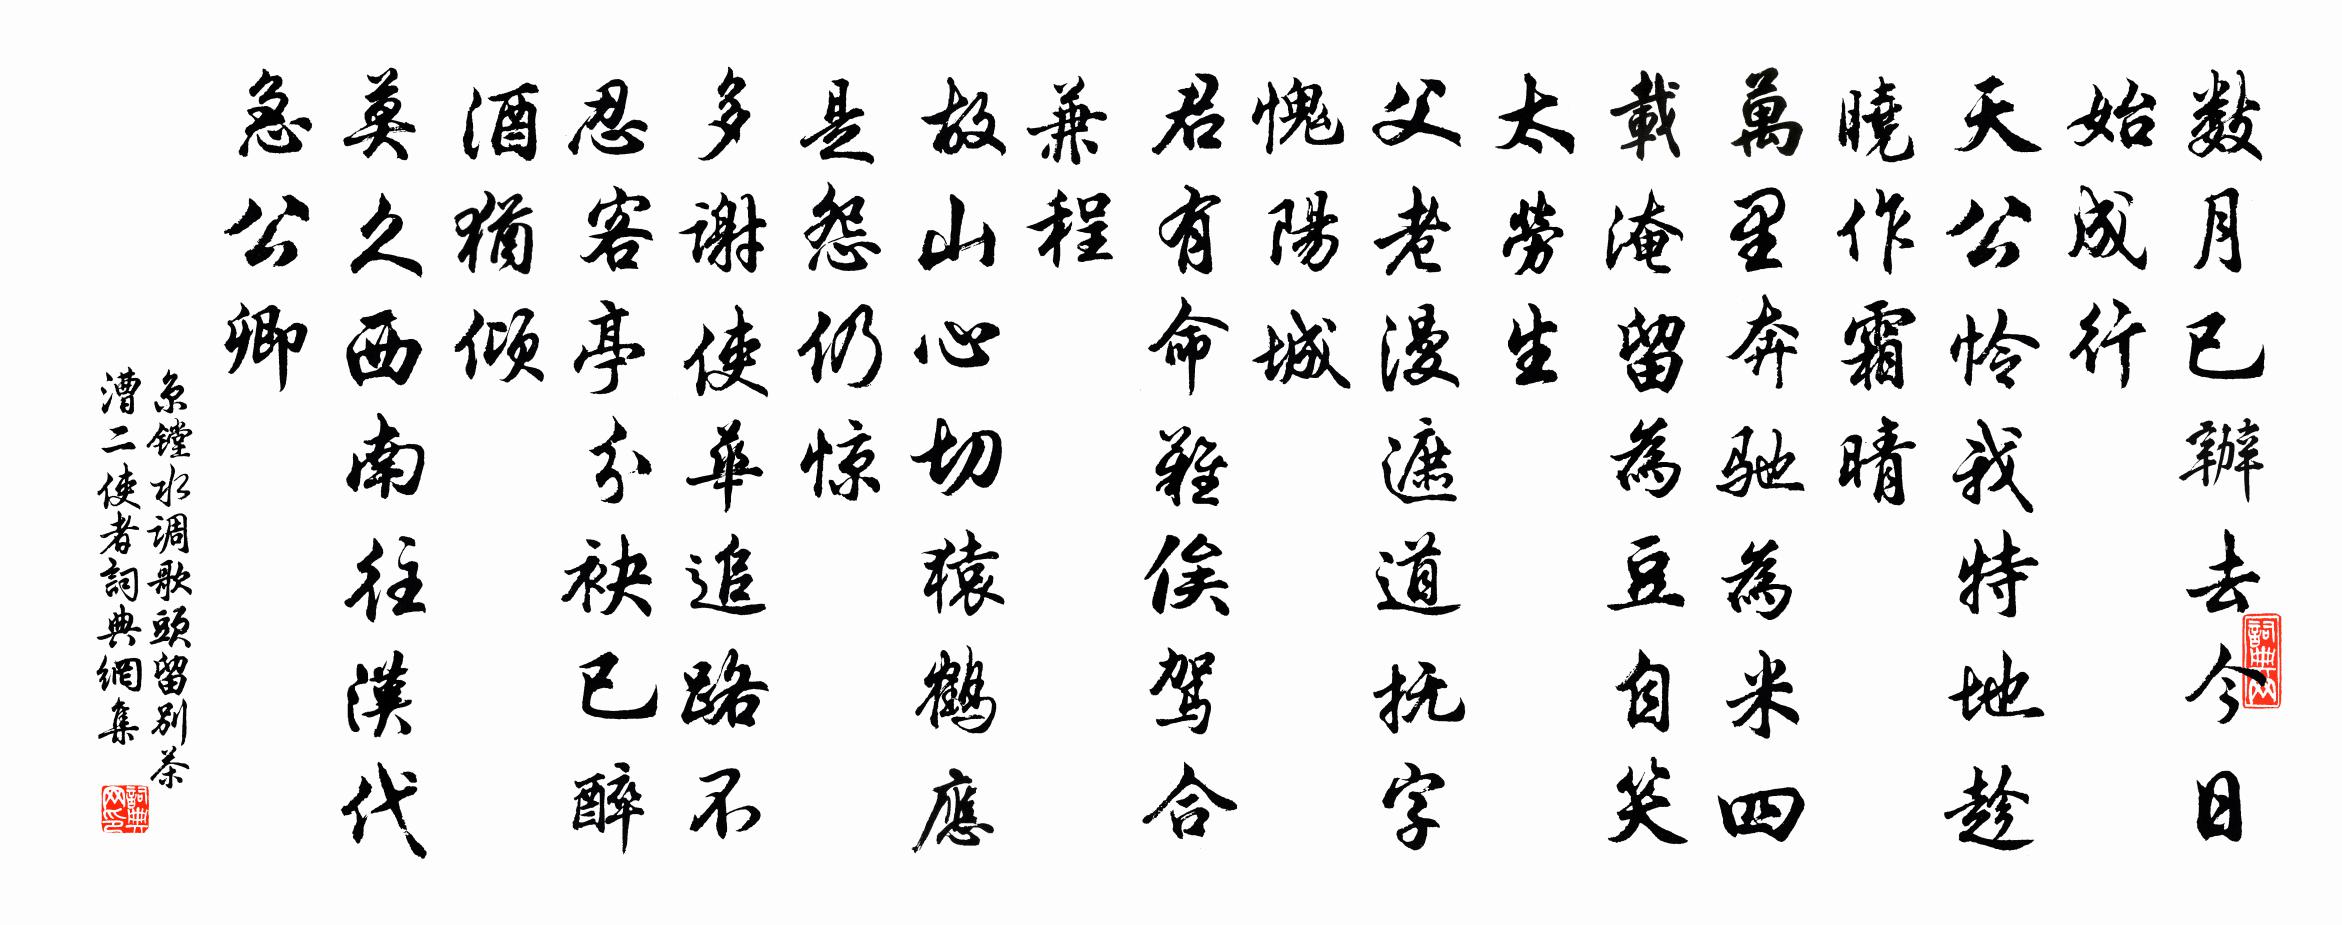 数月已辦去今日
始成行
天公怜我特地趁
曉作霜晴
萬里奔馳為米四
載淹留為豆自笑
太勞生
父老漫遮道抚字
愧陽城
君有命難俟駕合
兼程
故山心切猿鶴應
是怨仍惊
多謝使華追路不
忍客亭分袂已醉
酒猶傾
莫久西南往漢代
急公卿
京镗水调歌頭留别茶
漕二使者詞典網集
詞典网
詞典网印